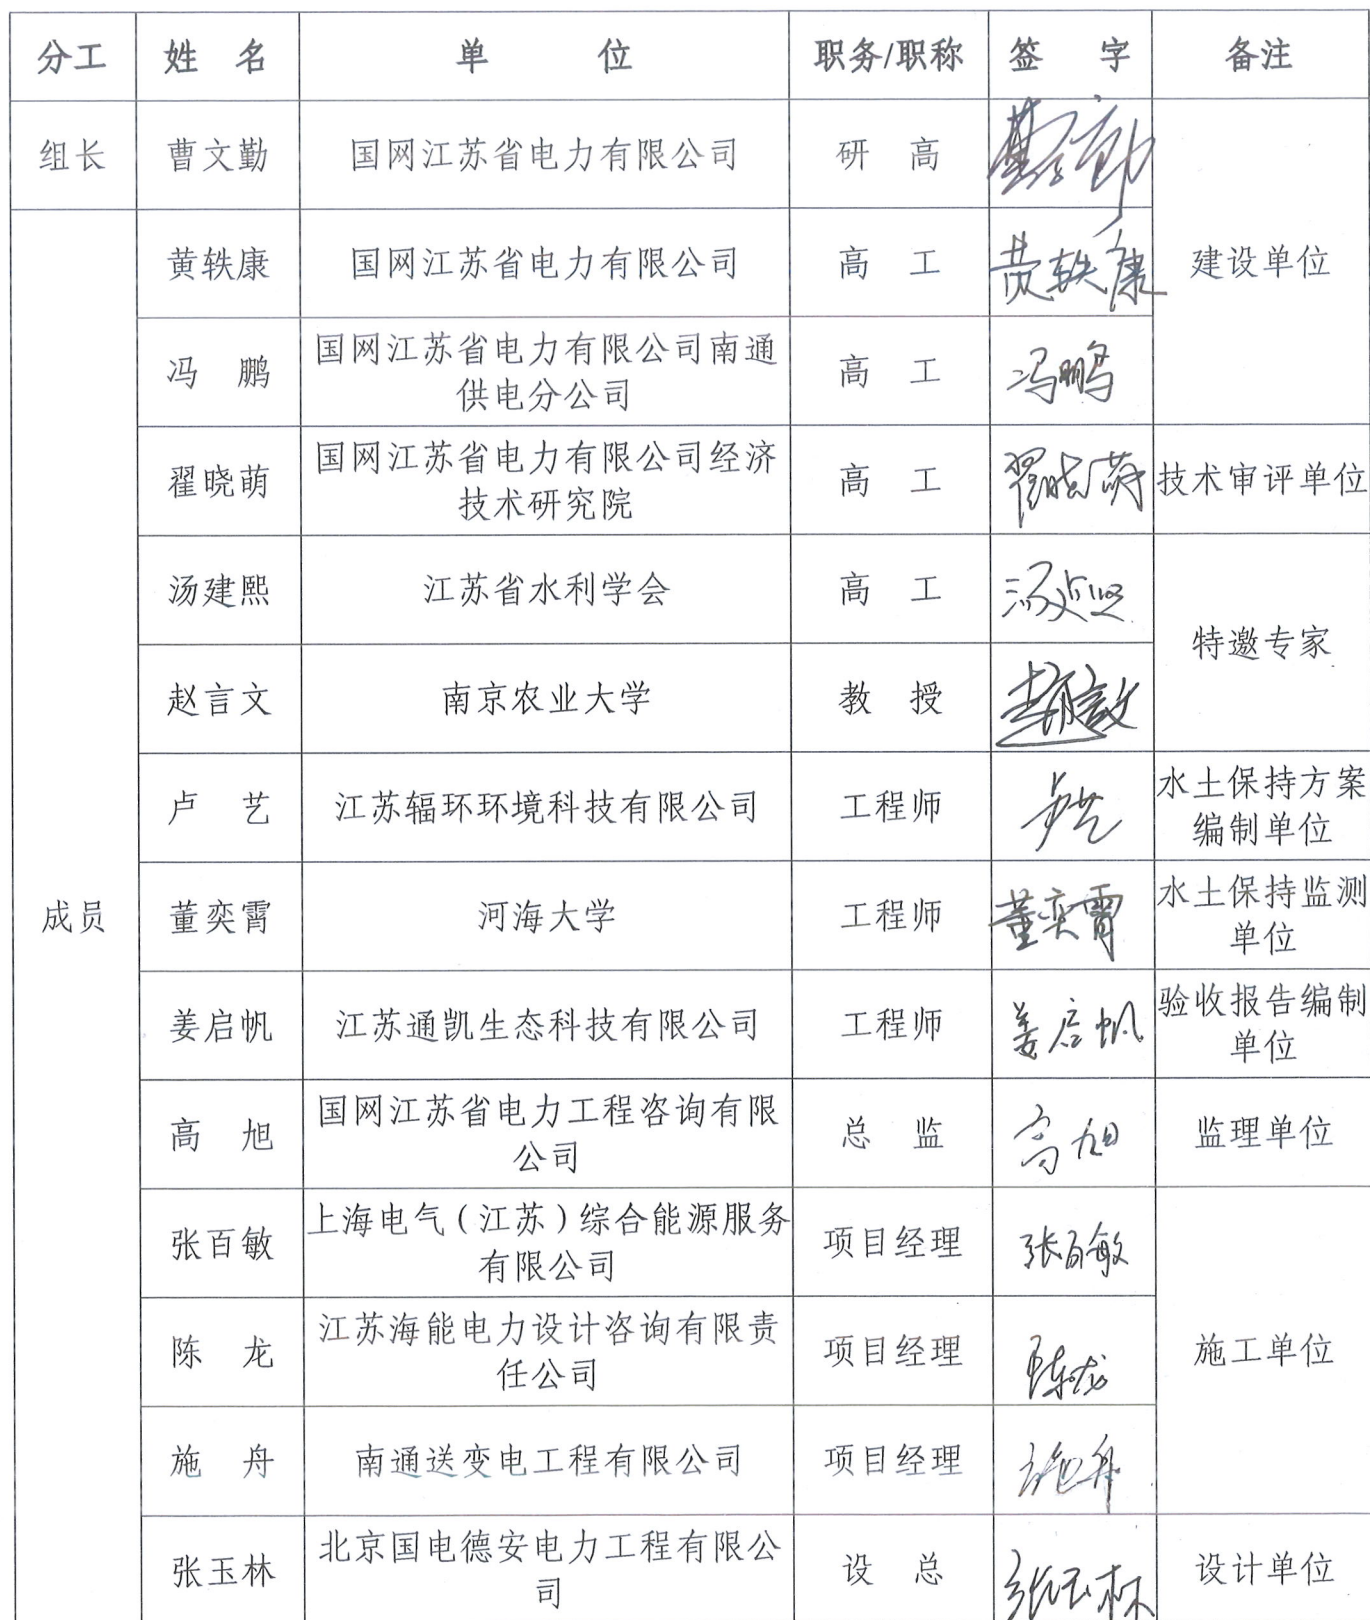 分工 姓 名 单 位 职务/职称 签 字 备注
组长 曹文勤 国网江苏省电力有限公司 研 高
黄轶康 国网江苏省电力有限公司 高 工 黄轶康 建设单位
冯 鹏 国网江苏省电力有限公司南通
供电分公司 高 工 冯鹏
翟晓萌 国网江苏省电力有限公司经济
技术研究院 高 工 翟晓萌 技术审评单位
汤建熙 江苏省水利学会 高 工 汤建熙
特邀专家
赵言文 南京农业大学 教 授 赵言文
卢 艺 江苏辐环环境科技有限公司 工程师 卢艺 水土保持方案
编制单位
成员 董奕霄 河海大学 工程师 董奕霄 水土保持监测
单位
姜启帆 江苏通凯生态科技有限公司 工程师 姜启帆 验收报告编制
单位
高 旭 国网江苏省电力工程咨询有限
公司 总 监 高旭 监理单位
张百敏 上海电气（江苏）综合能源服务
有限公司 项目经理 张百敏
陈 龙 江苏海能电力设计咨询有限责
任公司 项目经理 陈龙 施工单位
施 舟 南通送变电工程有限公司 项目经理 施舟
张玉林 北京国电德安电力工程有限公
司 设 总 张玉林 设计单位